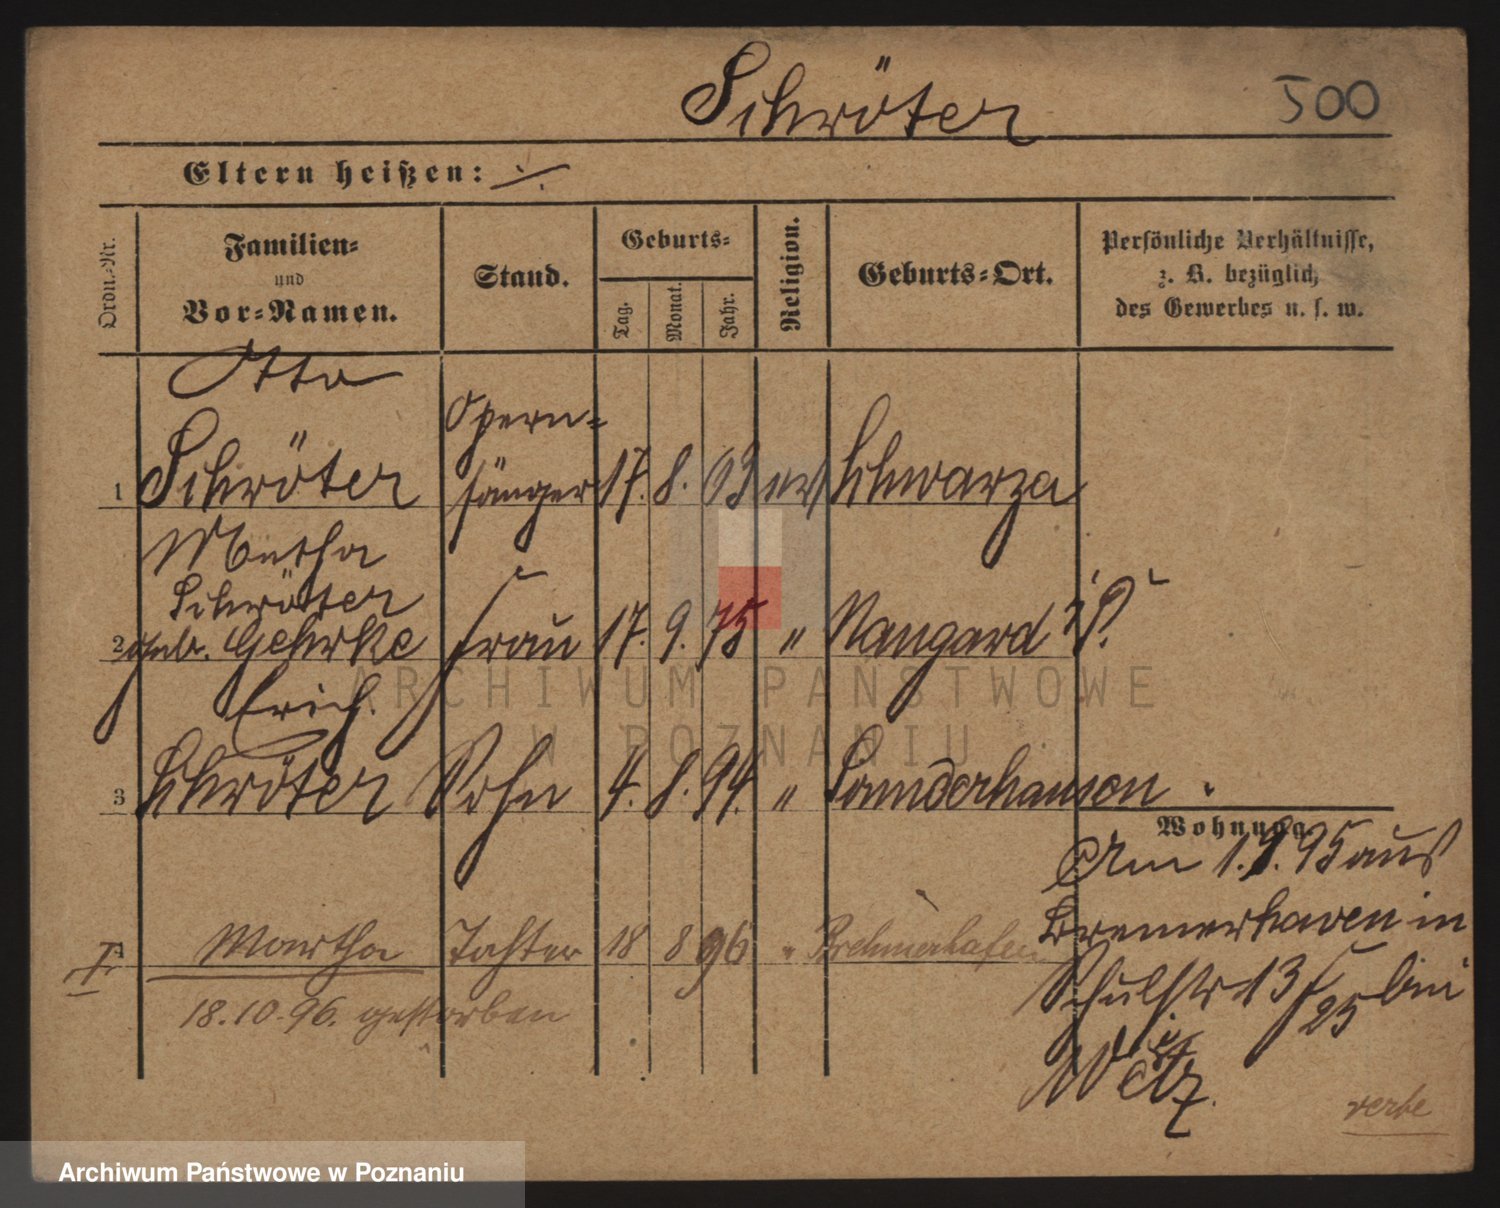 Schröter
500
Eltern heißen: ·/.
Ordn.-Nr.
Familien-
und
Vor-Namen.
Stand.
Geburts-
Tag.
Monat.
Jahr.
Religion.
Geburts-Ort.
Persönliche Verhältnisse,
z. B. bezüglich
des Gewerbes u. s. w.
Otto
Opern-
1 Schröter sänger 17. 8. 63 ev Schwarza
Martha
Schröter
2 geb. Gehrke Frau 17. 9. 75 " Naugard i/P.
Erich.
3 Schröter Sohn 4. 8. 94. " Sondershausen
Wohnung.
Am 1.9.95 aus
Bremerhaven in
Schulstr 13 bei
Martha Tochter 18 8 96 " Brehmerhafen
18.10.96. gestorben
verte
ARCHIWUM PAŃSTWOWE
W POZNANIU
Archiwum Państwowe w Poznaniu